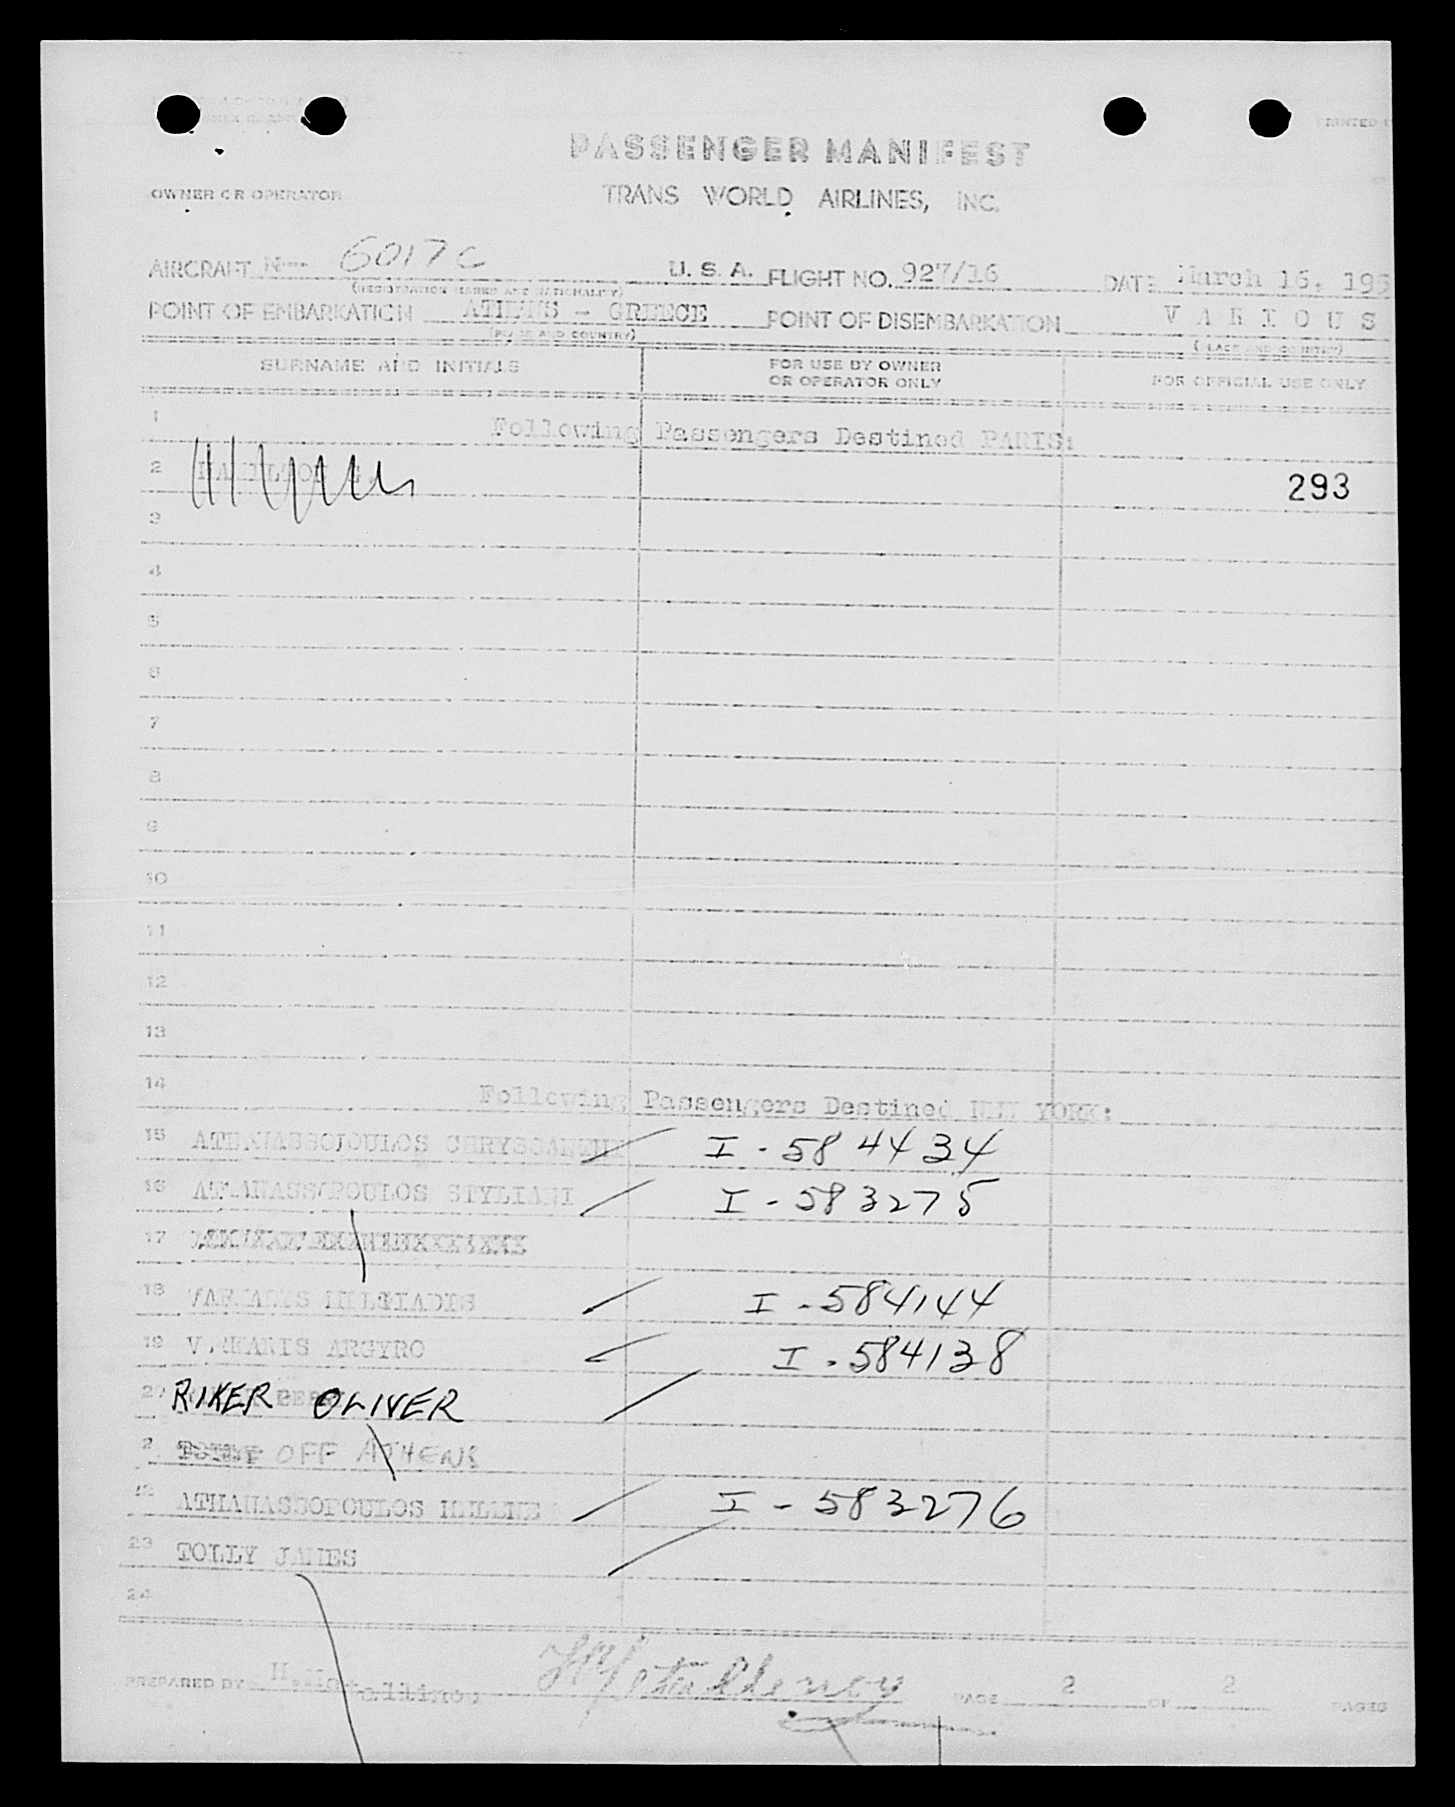 PASSENGER MANIFEST
OWNER OR OPERATOR TRANS WORLD AIRLINES, INC.
AIRCRAFT N-- 6017C U. S. A. FLIGHT NO. 927/16 DATE March 16, 195
(REGISTRATION MARKS AND NATIONALITY)
POINT OF EMBARKATION ATHENS - GREECE POINT OF DISEMBARKATION V A R I O U S
(PLACE AND COUNTRY) (PLACE AND COUNTRY)
SURNAME AND INITIALS FOR USE BY OWNER OR OPERATOR ONLY FOR OFFICIAL USE ONLY
1 Following Passengers Destined PARIS:
2 293
3
4
5
6
7
8
9
10
11
12
13
14 Following Passengers Destined NEW YORK:
15 ATHANASSOPOULOS I-584434
16 ATHANASSOPOULOS STYLIANI I-583275
17
18 MILTIADIS I-584144
19 ARGYRO I-584138
20 RIKER OLIVER
2 OFF ATHENS
22 ATHANASSOPOULOS I-583276
23 TOLLY JAMES
24
PREPARED BY PAGE 2 OF 2 PAGES